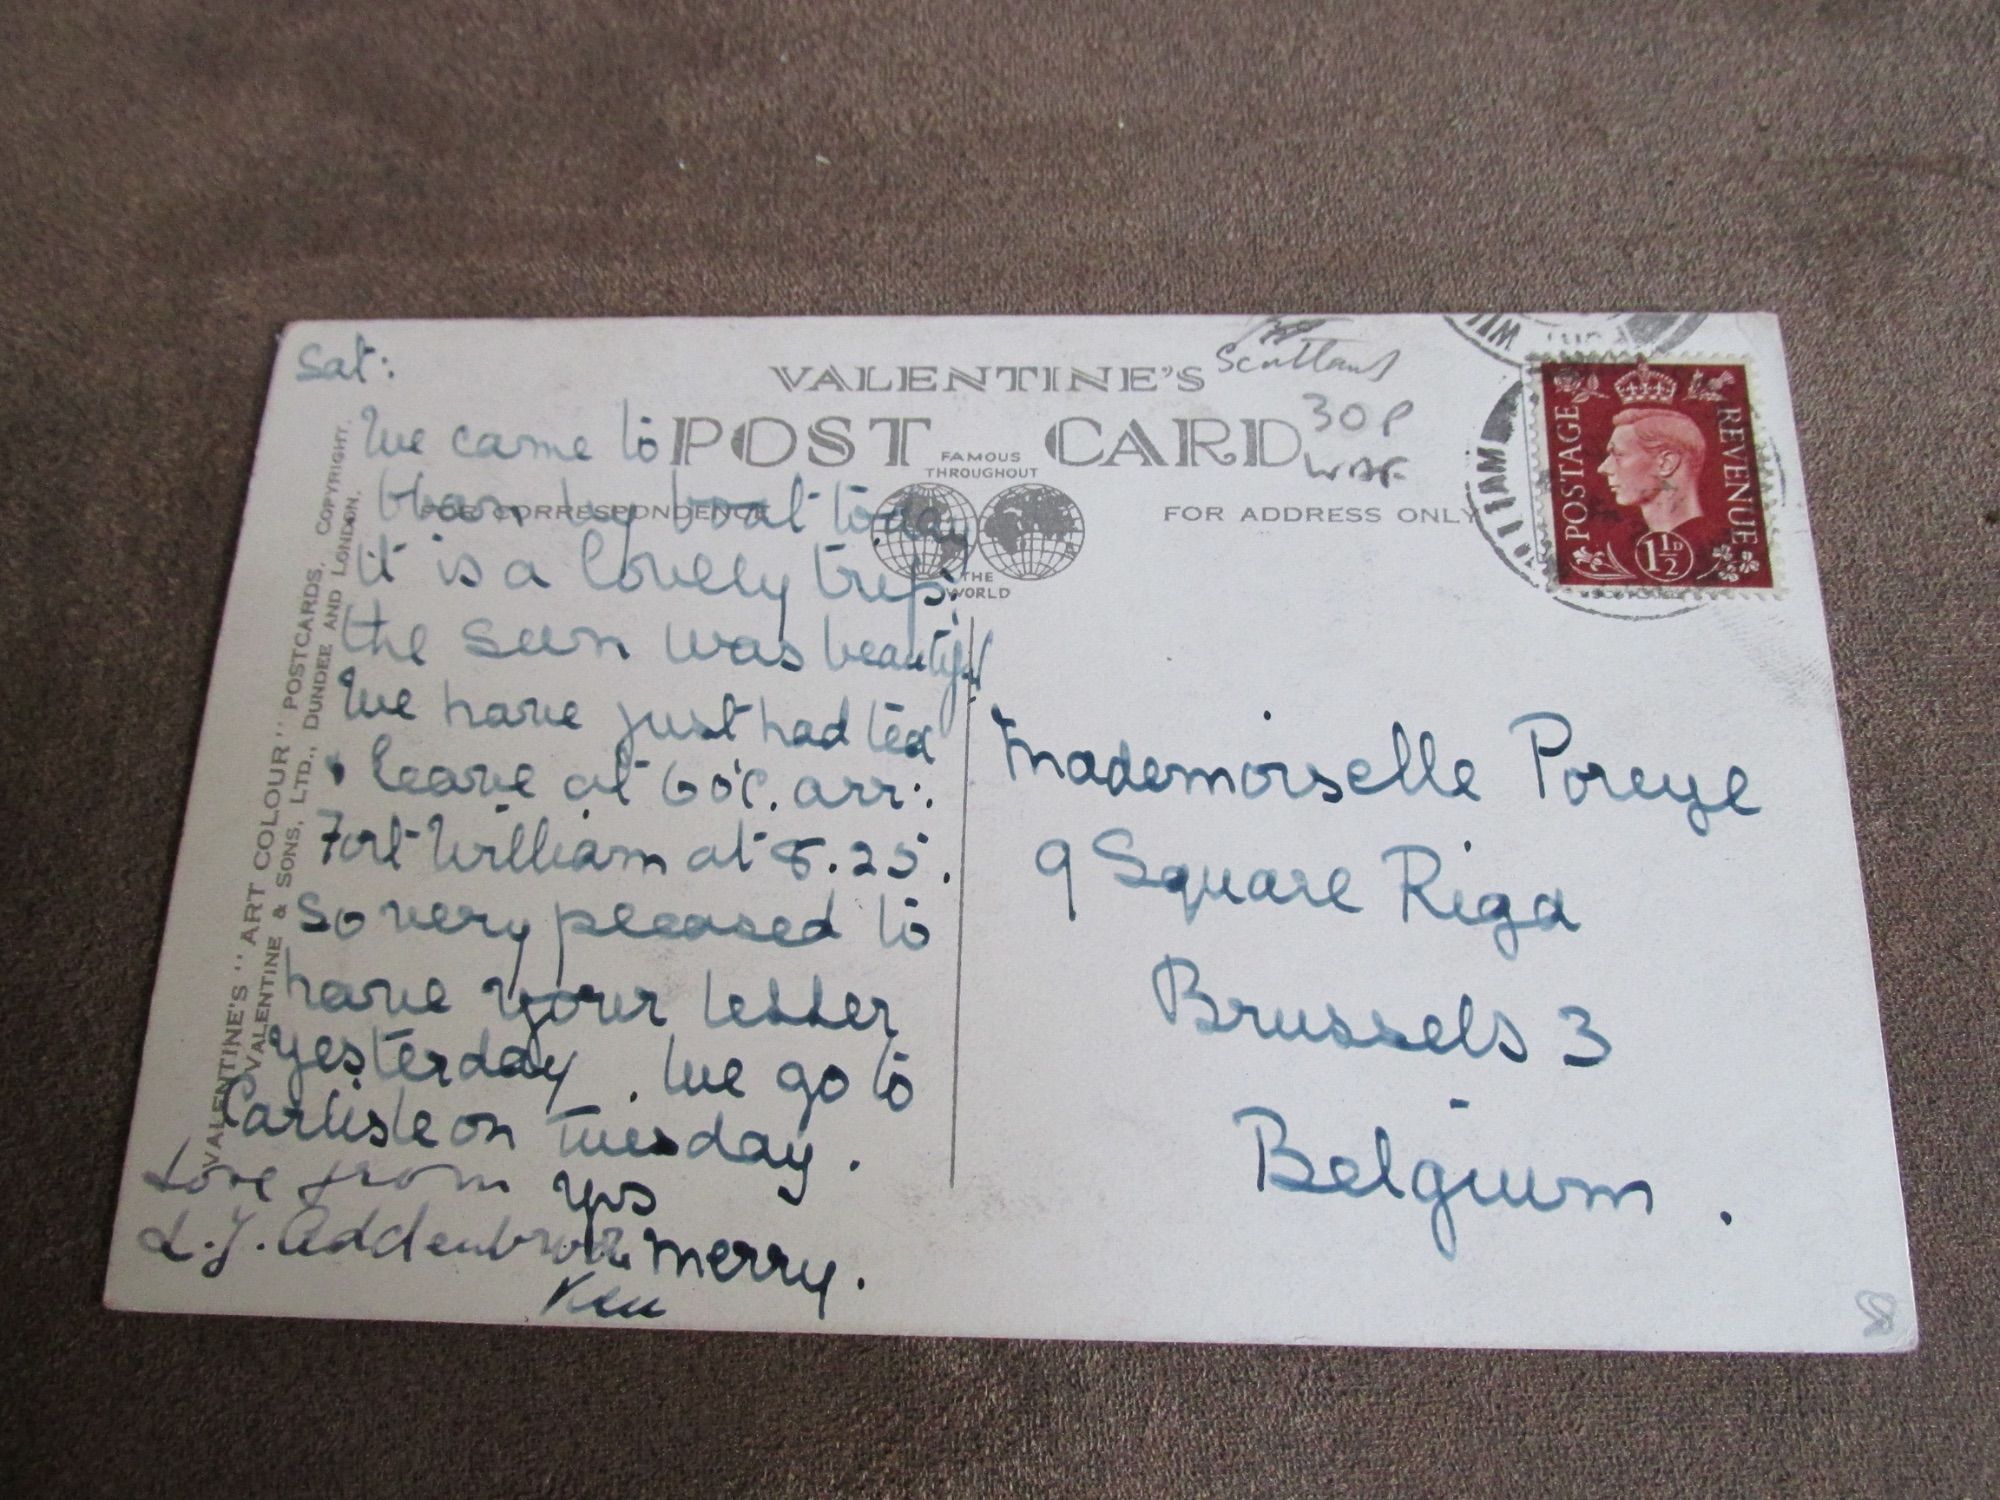 Sat:
We came to
Oban by boat today
it is a lovely trip.
the sun was beautiful
We have just had tea
& leave at 6 o'c. arr:.
Fort William at 8.25.
So very pleased to
have your letter
yesterday. We go to
Carlisle on Tuesday.
Love from yrs
L.J. Addenbrooke merry.
Ken
VALENTINE'S
POST CARD
FAMOUS
THROUGHOUT
THE
WORLD
FOR CORRESPONDENCE
FOR ADDRESS ONLY
Scotland
30P
Mademoiselle Poreye
9 Square Riga
Brussels 3
Belgium.
POSTAGE
REVENUE
1½D
1 AM
VALENTINE'S "ART COLOUR" POSTCARDS. COPYRIGHT.
VALENTINE & SONS, LTD., DUNDEE AND LONDON.